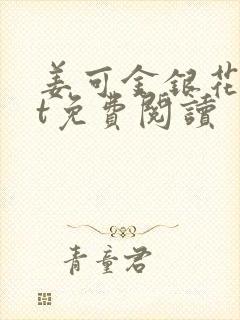 姜可金銀花
t免費閱讀
青童君